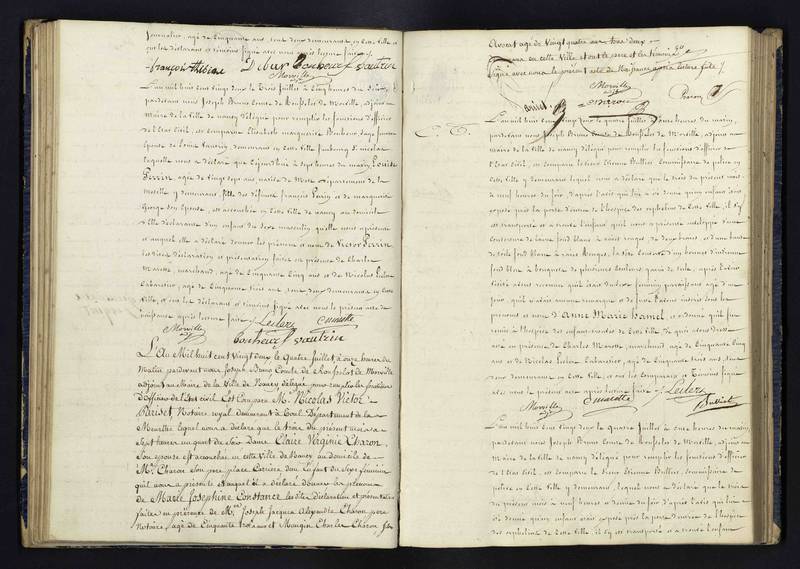 journalier, agé de Cinquante ans, tous deux demeurants en Cette Ville et
ont les déclarant et témoins signé avec nous après lecture faite
françois thibeau Debur Bonheur Vautrin
Morville
L'an mil huit cent vingt deux le Trois Juillet à Cinq heures du Soir,
pardevant nous Joseph Bruno Comte de Morville, adjoint au
maire de la Ville de nancy délégué pour remplir les fonctions d'officier
de l'État Civil, est comparue Elisabeth marguerite Bonheur, Sage femme
épouse de Louis Vautrin, demeurant en cette Ville faubourg St nicolas
laquelle nous a déclaré que Cejourd'hui à sept heures du matin Louise
Perrin agée de vingt sept ans native de Metz Département de la
Moselle y demeurant fille des défunts françois Perrin et de marguerite
George son épouse, est accouchée en cette Ville de nancy au domicile
d'Elle déclarante d'un enfant du sexe masculin qu'elle nous a présenté
et auquel elle a déclaré donner les prénoms et nom de Victor Perrin
les dites déclaration et présentation faites en présence de Charles
Marotte, marchand, agé de Cinquante Cinq ans et de Nicolas Leclerc
Cabaretier, agé de Cinquante trois ans, tous deux demeurants en cette
Ville, et ont les déclarant et témoins signé avec nous le présent acte de
naissance après lecture faite Leclerc C marotte
Morville bonheur vautrin
L'An Mil huit cent Vingt deux le Quatre Juillet, à onze heures du
Matin pardevant nous Joseph Bruno Comte de Morville
adjoint au Maire de la Ville de Nancy délégué pour remplir les fonctions
d'officier de l'État civil Est Comparu Mr. Nicolas Victor
Parisot Notaire royal demeurant à Toul Département de la
Meurthe lequel nous a déclaré que le trois du présent mois à
Sept heures un quart du Soir Dame Claire Virginie Charon
Son épouse est accouchée en cette Ville de Nancy au domicile de
Mr. Charon Son père place Carrière d'un Enfant du Sexe féminin
qu'il nous a présenté et auquel il a déclaré donner les prénoms
de Marie Joséphine Constance les dites Déclaration et présentation
faites en présence de Joseph Jacques Alexandre Charon père
Notaire, agé de Cinquante trois ans et Mougin Charles Charon fils
Avocat agé de Vingt quatre ans tous deux
en cette Ville et ont le père et les témoins
Signé avec nous le présent acte de Naissance après lecture faite
Morville
Parisot Charon
L'an mil huit cent vingt deux le quatre Juillet à onze heures du matin,
pardevant nous Joseph Bruno Comte de Morville, adjoint au
maire de la Ville de nancy délégué pour remplir les fonctions d'officier
de l'État Civil, est comparu le sieur Etienne Commissaire de police en
cette Ville y demeurant lequel nous a déclaré que le trois du présent mois
à neuf heures du soir, d'après l'avis qui lui a été donné qu'un enfant était
exposé près la porte d'entrée de l'hospice des orphelins de Cette Ville, il s'y
est transporté et a trouvé l'enfant qu'il nous a présenté enveloppé d'une
fond blanc à raies rouges, de deux langes et d'une bande
de toile fond blanc à raies Rouges, la tête couverte d'un bonnet d'indienne
fond blanc à bouquets de plusieurs couleurs garni de toile, après l'avoir
visité avons reconnu qu'il était du sexe féminin paraissant agé d'un
jour, qu'il n'avait aucune remarque et de suite l'avons inscrit sous les
prénoms et nom d'Anne Marie hamel et ordonné qu'il fut
remis à l'hospice des enfants trouvés de Cette Ville, de quoi avons dressé
acte en présence de Charles Marotte, marchand agé de Cinquante Cinq
ans et de Nicolas Leclerc Cabaretier, agé de Cinquante trois ans, tous
deux demeurants en cette Ville, et ont les Comparant et Témoins signé
avec nous le présent acte après lecture faite Leclerc
Morville C marotte
L'an mil huit cent vingt deux le quatre Juillet à onze heures du matin,
pardevant nous Joseph Bruno Comte de Morville, adjoint au
Maire de la Ville de nancy délégué pour remplir les fonctions d'officier
de l'État Civil, est comparu le Sieur Etienne commissaire de
police en cette Ville y demeurant, lequel nous a déclaré que le trois
du présent mois à neuf heures et demie du soir d'après l'avis qui lui a
été donné qu'un enfant était exposé près la porte d'entrée de l'hospice
des orphelins de Cette Ville, il s'y est transporté et a trouvé l'enfant